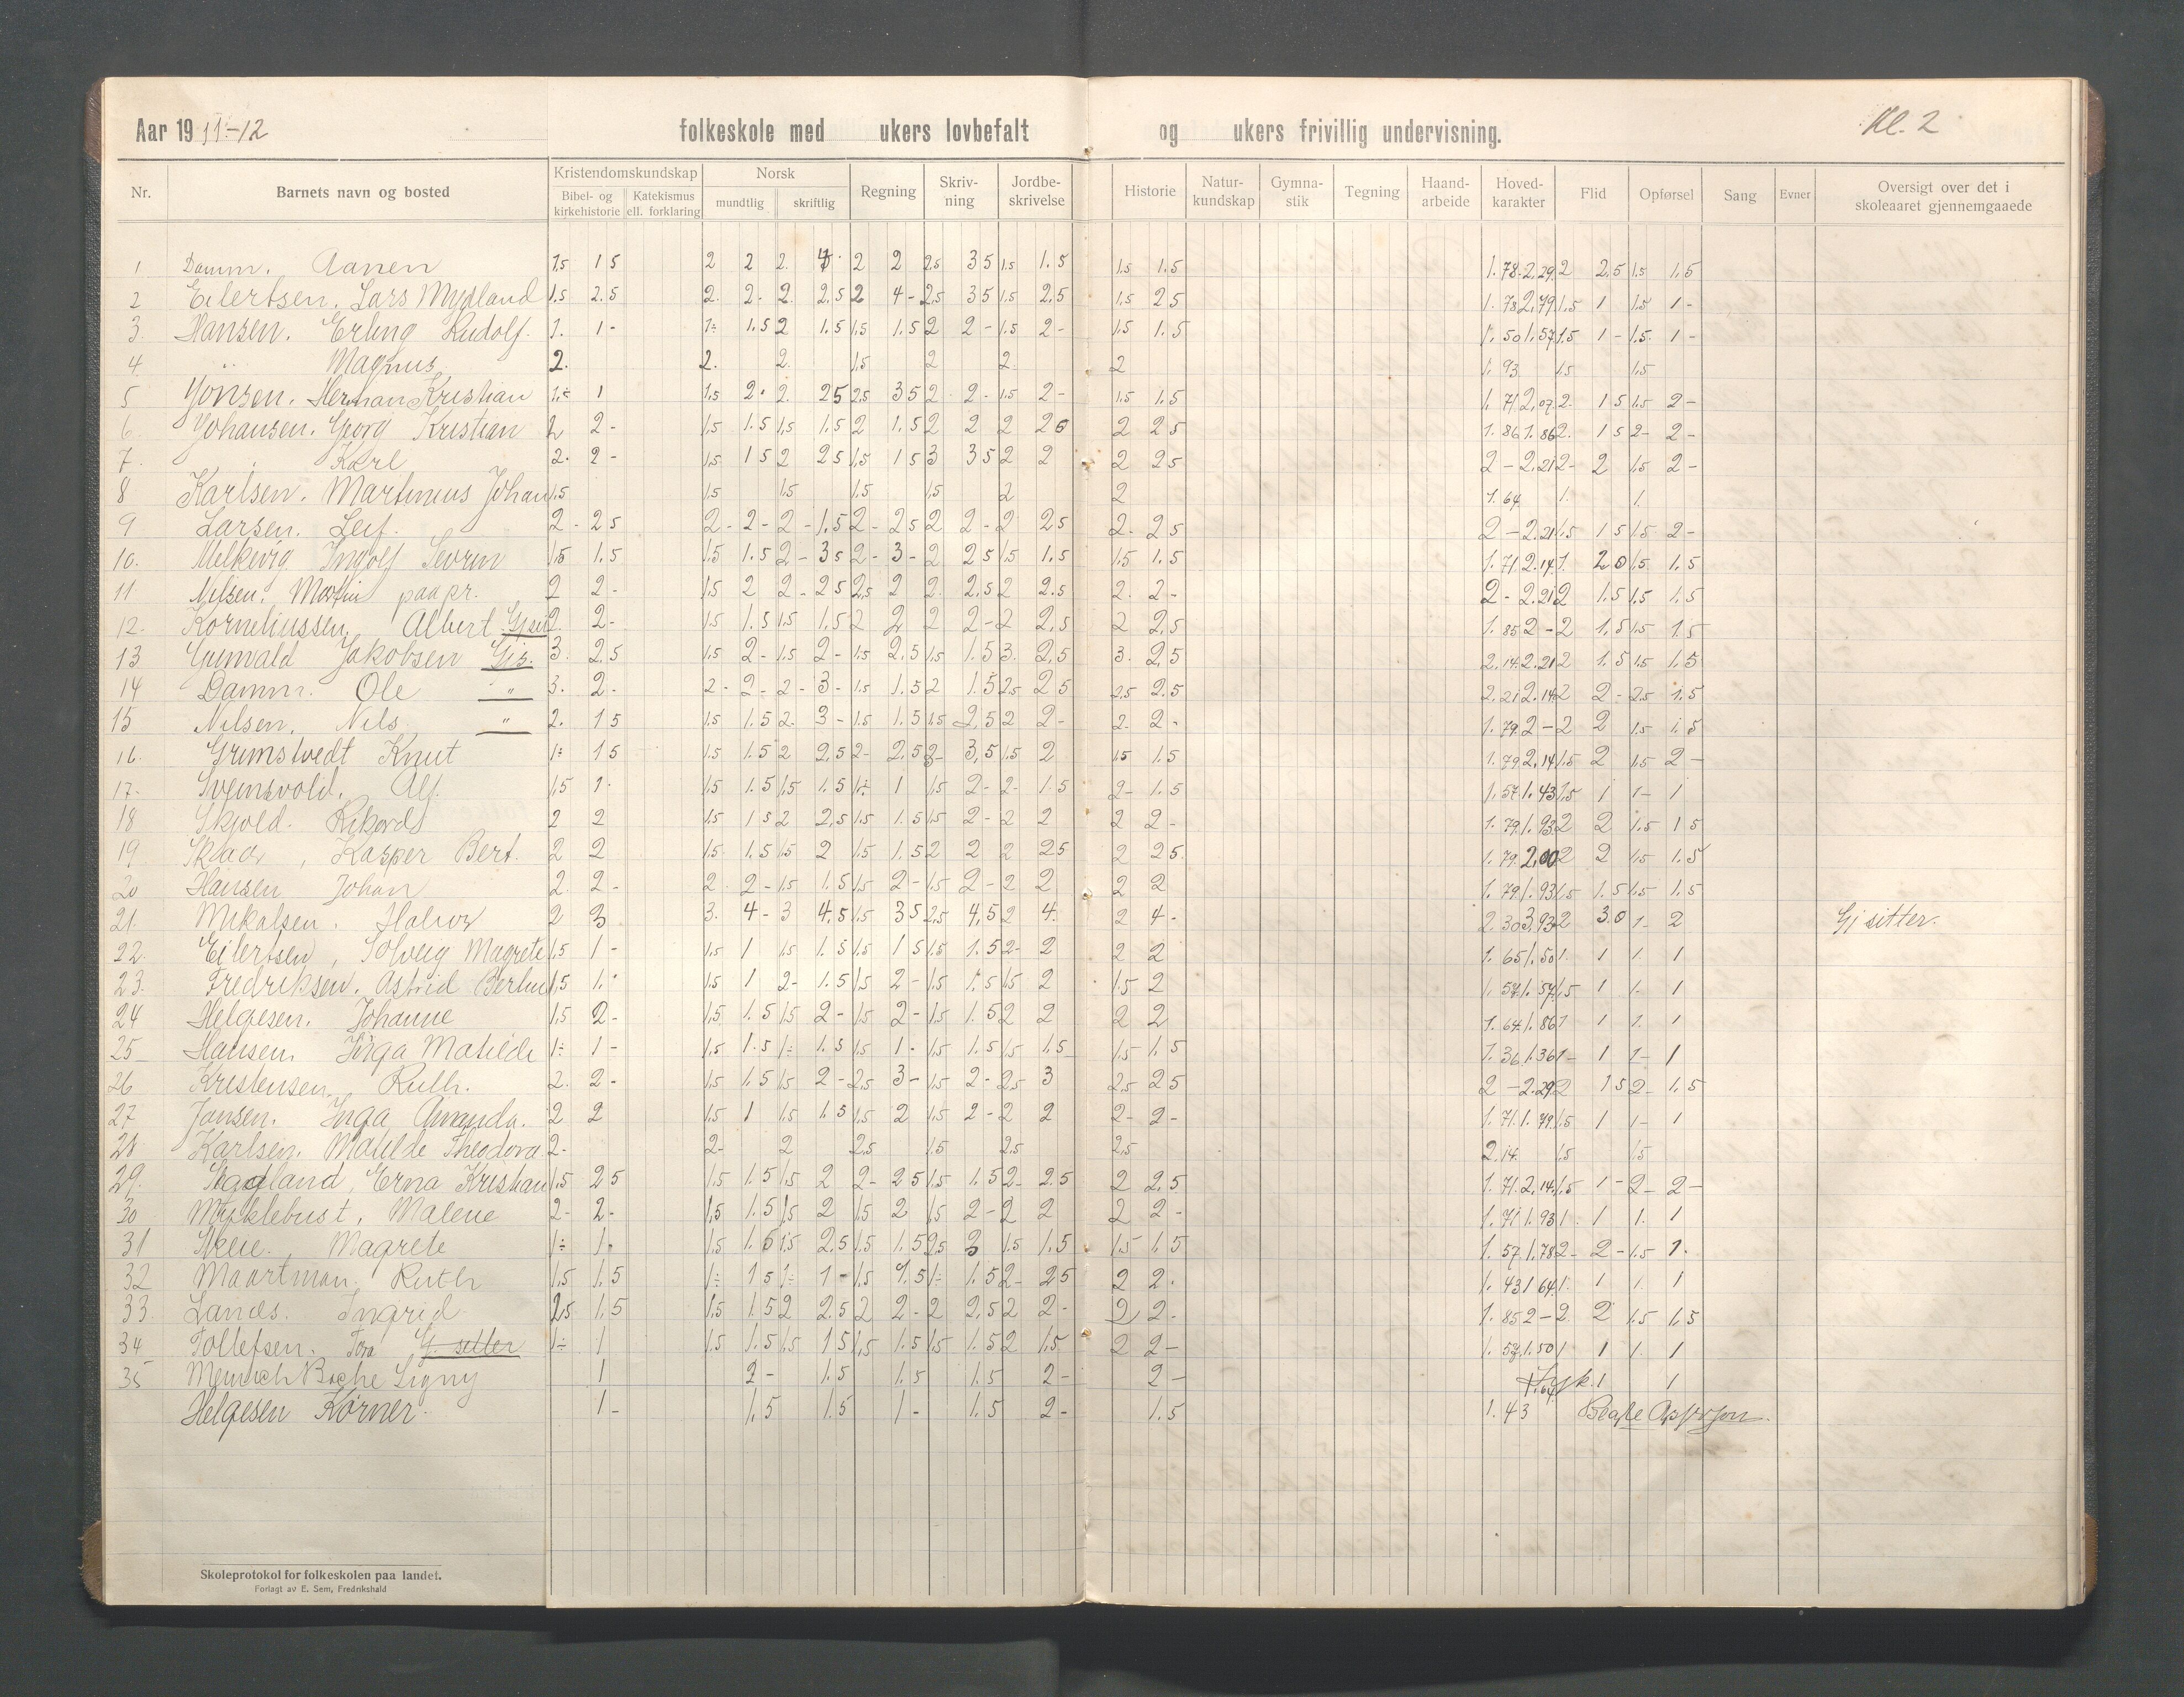 Aar 1911-12 folkeskole med ukers lovbefalt og ukers frivillig undervisning. Kl. 2
Nr. Barnets navn og bosted Kristendomskundskap Norsk Regning Skriv-ning Jordbe-skrivelse Historie Natur-kundskap Gymna-stik Tegning Haand-arbeide Hoved-karakter Flid Opførsel Sang Evner Oversigt over det i skoleaaret gjennemgaaede
Bibel- og kirkehistorie Katekismus ell. forklaring mundtlig skriftlig
1 Damm. Aanen 1.5 1 5 2 2 2. 4 2 2 2.5 3 5 1.5 1.5 1.5 1.5 1.78 2.29 2 2.5 1.5 1.5
2 Eilertsen. Lars Mydland 1.5 2.5 2. 2- 2. 2.5 2 4- 2.5 3 5 1.5 2.5 1.5 2 5 1.78 2.79 1.5 1 1.5 1-
3. Hansen. Erling Rudolf. 1. 1- 1÷ 1.5 2 1.5 1.5 1.5 2 2- 1.5 2- 1.5 1.5 1.50 1.57 1.5 1- 1.5. 1-
4. " Magnus 2. 2. 2. 1.5 2 2. 2 1.93 1.5 1.5
5 Jonsen. Herman Kristian 1.÷ 1 1.5 2. 2. 2 5 2.5 3 5 2 2- 1.5 2- 1.5 1.5 1.71 2.07 2. 1 5 1.5 2-
6. Johansen. Georg Kristian 2 2- 1.5 1.5 1.5 1.5 2 1.5 2 2 2 2 0 2 2 5 1.86 1.86 2. 1 5 2- 2-
7. " Karl 2. 2- 1.5 1 5 2 2 5 1.5 1 5 3 3 5 2 2 2 2 5 2- 2.21 2- 2 1.5 2-
8 Karlsen. Martinius Johan 1.5 1.5 1.5 1.5 1.5 2 2 1.64 1. 1.
9 Larsen. Leif. 2- 2 5 2- 2- 2- 1.5 2- 2 5 2 2- 2 2 5 2- 2 5 2- 2.21 1.5 1 5 1.5 2-
10. Melkevig Ingolf Sevrin 1.5 1.5 1.5 1.5 2- 3 5 2- 3- 2 2 5 1.5 1.5 1.5 1.5 1.71 2.14 1. 2 0 1.5 1.5
11 Nilsen. Martin paa pr. 2 2- 1.5 2 2- 2 5 2.5 2 2. 2.5 2 2.5 2. 2- 2- 2.21 2 1.5 1.5 1.5
12. Korneliussen Albert 2. 2- 1.5 1.5 1.5 1.5 2 2 2 2- 2 2.5 2 2.5 1.85 2- 2 1.5 1.5 1.5
13 Grunvald Jakobsen Gjs. 3. 2.5 1.5 2- 1.5 2- 1.5 2.5 1.5 1.5 3. 2.5 3. 2.5 2.14 2.21 2 1.5 1.5 1.5
14 Damm. Ole " 3. 2- 2- 2- 2- 3- 1.5 1.5 2 1.5 2.5 2 5 2.5 2.5 2.21 2.14 2 2- 2.5 1.5
15 Nilsen. Nils. " 2. 1 5 1.5 1.5 2. 3- 1.5 1.5 1.5 2.5 2 2- 2- 2- 1.79 2- 2 2 1.5 1.5
16. Grimstvedt Knut 1÷ 1 5 1.5 1.5 2 2.5 2- 2.5 2- 3.5 1.5 2 1.5 1.5 1.79 2.14 1.5 2 1.5 2-
17. Svensvold. Alf. 1.5 1. 1.5 1.5 1.5 1.5 1÷ 1 1.5 2- 2- 1.5 2- 1.5 1.57 1.43 1.5 1 1- 1
18 Skjold. Rikard 2 2 1.5 1 5 2 2.5 1.5 1.5 1.5 2- 2 2 2 2- 1.79 1.93 2 2 1.5 1 5
19 Skaar, Kasper Bert. 2 2 1.5 1.5 1.5 2 1.5 1.5 2 2 2 2 5 2 2 5 1.79 2.00 2 2 1.5 1.5
20 Hansen Johan 2. 2- 2. 2- 1.5 1.5 1.5 2- 1.5 2- 2 2 2 2 1.79 1.93 1.5 1.5 1.5 1.5
21. Mikalsen. Halvor 2 3 3. 4- 3 4.5 1.5 3 5 2.5 4.5 2 4. 2 4- 2.30 3.93 2 3.0 1- 2 Gj sitter.
22. Eilertsen, Solveig Magrete 1.5 1- 1.5 1 1.5 1.5 1.5 1 5 1.5 1.5 2- 2 2 2 1.65 1.50 1. 1 1. 1
23. Fredriksen. Astrid 1.5 1. 1.5 1 2- 1.5 1.5 2- 1.5 1.5 1.5 2 1.5 2 1.57 1.57 1.5 1 1- 1
24 Helgesen. Johanne 1.5 2- 1.5 1.5 1.5 2- 1.5 2- 1.5 1.5 2 2 2 2 1.64 1.86 1 1 1. 1
25 Hansen. Inga Matilde 1÷ 1- 1.5 1.5 1÷ 1.5 1.5 1- 1.5 1.5 1.5 1.5 1.5 1.5 1.36 1.36 1- 1 1- 1
26 Kristensen. Ruth. 2. 2- 1.5 1.5 1.5 2- 2.5 3- 1.5 2- 2.5 3 2.5 2 5 2- 2.29 2 1 5 2- 1.5
27 Jansen. Inga Amanda. 2 2 1.5 1 1.5 1.5 1.5 2 1.5 2- 2 2 2- 2- 1.71 1.79 1.5 1 1- 1
28 Karlsen. Matilde Theodora 2- 2- 2 2.5 1.5 2.5 2.5 2.14. 1.5 1.5
29. Erna Kristian 1.5 2 5 1.5 1.5 1.5 2 2- 2 5 1.5 1.5 2- 2.5 2 2.5 1.71 2.14 1.5 1- 2- 2-
30 Myklebust, Malene 2- 2- 1.5 1.5 1.5 2 1.5 2 1.5 2- 2 2 2 2- 1.71 1.93 1. 1 1. 1
31 Skeie. Magrete 1÷ 1. 1.5 1.5 1.5 2.5 1.5 1.5 2.5 3 1.5 1.5 1.5 1.5 1.57 1.78 2- 2- 1.5 1.
32 Maartman. Ruth 1.5 1.5 1÷ 1 5 1÷ 1- 1.5 1.5 1÷ 1.5 2- 2 5 2 2. 1.43 1 64 1. 1 1. 1
33. Landes. Ingrid 2.5 1.5 1.5 1.5 2 2.5 2 2- 2 2.5 2 2- 2 2- 1.85 2- 2. 2 1.5 1.5
34 Tollefsen. Tora Gj. sitter 1÷ 1 1.5 1.5 1.5 1 5 1.5 1.5 1.5 1.5 2 1.5 2 2- 1.57 1.50 1 1 1. 1
35 Meinich Bache Signy 1 2- 1.5 1.5 1.5 2- 2- 1.64 1 1
Helgesen Kørner. 1- 1.5 1.5 1- 1.5 2- 1.5 1.43
Skoleprotokol for folkeskolen paa landet.
Forlagt av E. Sem, Fredrikshald